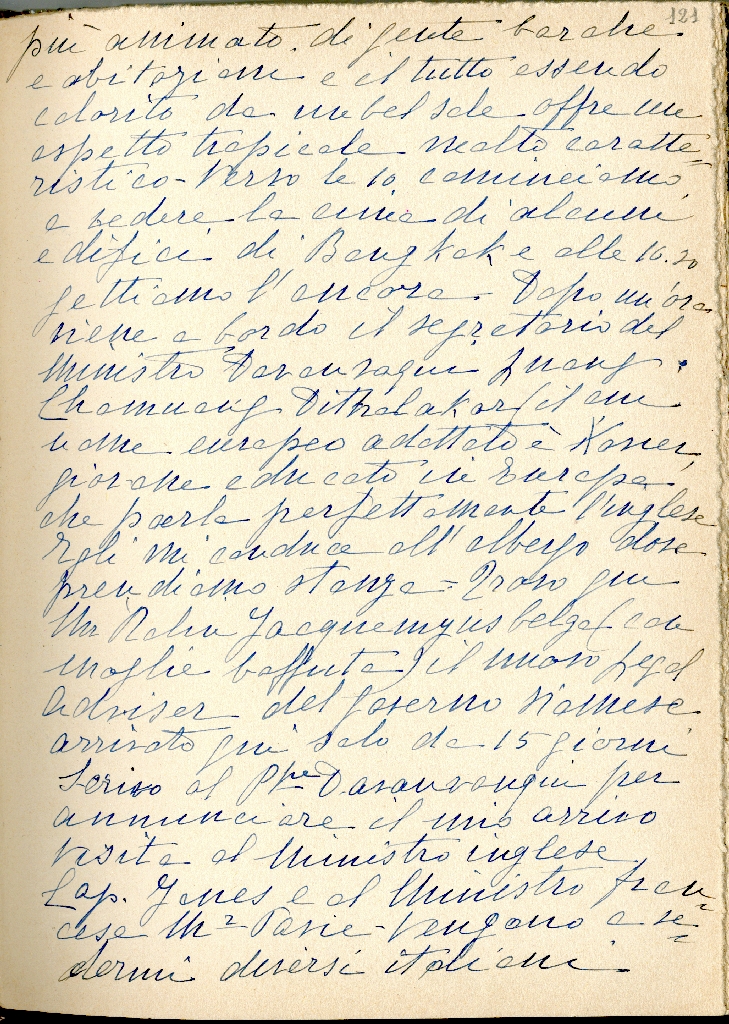 121
più animato di gente barche
e abitazioni e il tutto essendo
colorito da un bel sole offre un
aspetto tropicale molto caratte=
ristico - Verso le 10 cominciamo
a vedere la cima di alcuni
edifici di Bangkok e alle 10.30
gettiamo l'ancora - Dopo un'ora
viene a bordo il segretario del
Ministro Devanvaqui Luang
Chamnang Dithakar (il cui
nome europeo adottato è Xavier,
giovane educato in Europa
che parla perfettamente l'inglese
Egli mi conduce all'albergo dove
prendiamo stanza = Trovo qui
Mr Rolin Jacquemyns belga (con
moglie baffuta) il nuovo legal
adviser del governo siamese
arrivato qui solo da 15 giorni
Scrivo al Pce Davanvangui per
annunciare il mio arrivo
visita al Ministro inglese
Cap. Jones e al Ministro fran=
cese Mr Pavie - Vengono a ve=
dermi diversi italiani -